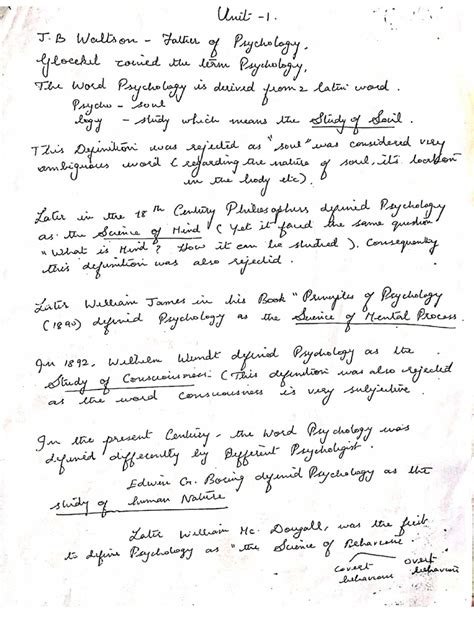 Unit - 1.
J. B Waltson - Father of Psychology.
Glockel coined the term Psychology.
The Word Psychology is derived from 2 latin word.
Psycho - soul
logy - study which means the Study of Soul.
This Definition was rejected as "soul" was considered very
ambiguous word (regarding the nature of soul, its location
in the body etc).
Later in the 18th Century Philosophers defined Psychology
as the Science of Mind (Yet it faced the same question
"What is Mind? How it can be studied). Consequently
this definition was also rejected.
Later William James in his Book "Principles of Psychology
(1890) defined Psychology as the Science of Mental Process.
In 1892, Wilhelm Wundt defined Psychology as the
Study of Consciousness. (This definition was also rejected
as the word consciousness is very subjective.
In the present Century - the Word Psychology was
defined differently by Different Psychologist.
Edwin G. Boring defined Psychology as the
study of human Nature
Later William Mc. Dougall, was the first
to define Psychology as "the Science of Behaviour
covert behaviour
overt behaviour